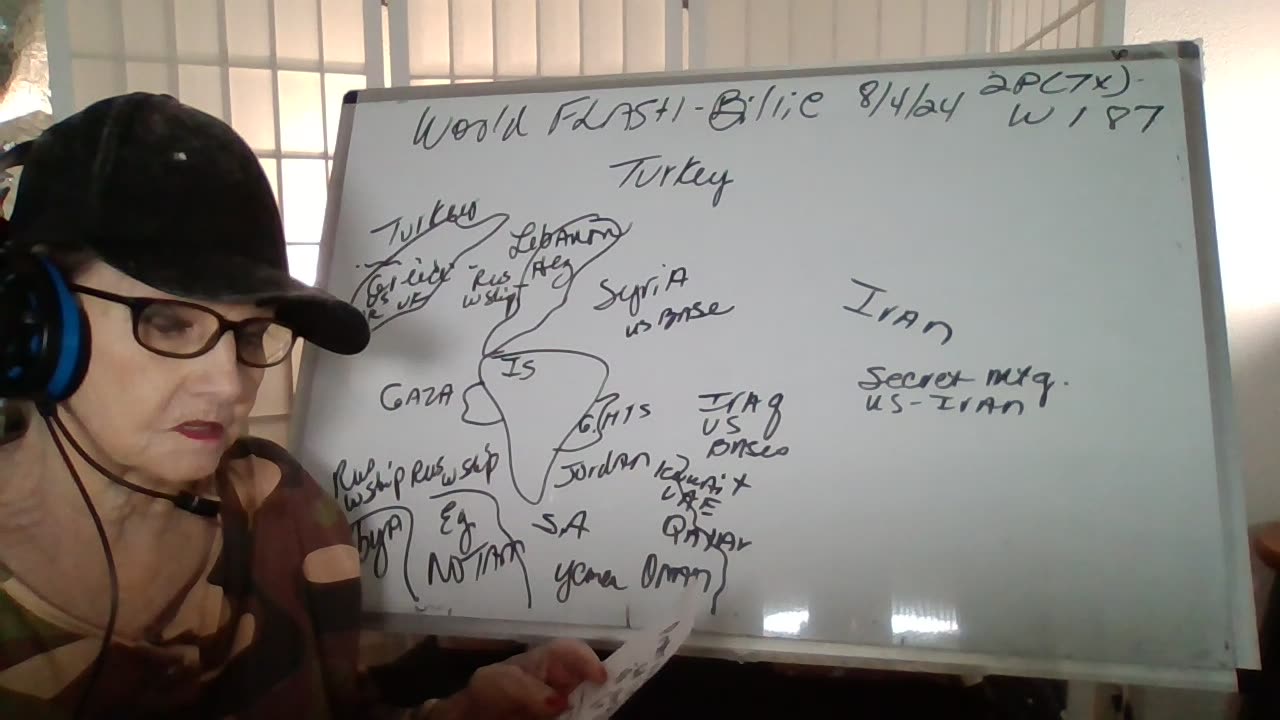 World FLASH-Billie 8/4/24 2P(7X)-
W187
Turkey
Turkey
Lebanon
Rus
Wship
Syria
US Base
Iran
IS
GAZA
Secret mtg.
US-Iran
G. HTS
Iraq
US
Bases
Jordan
Kuwait
UAE
Qatar
Rus
Wship
Rus
Wship
Eg.
NOTAM
S.A
Yemen Oman